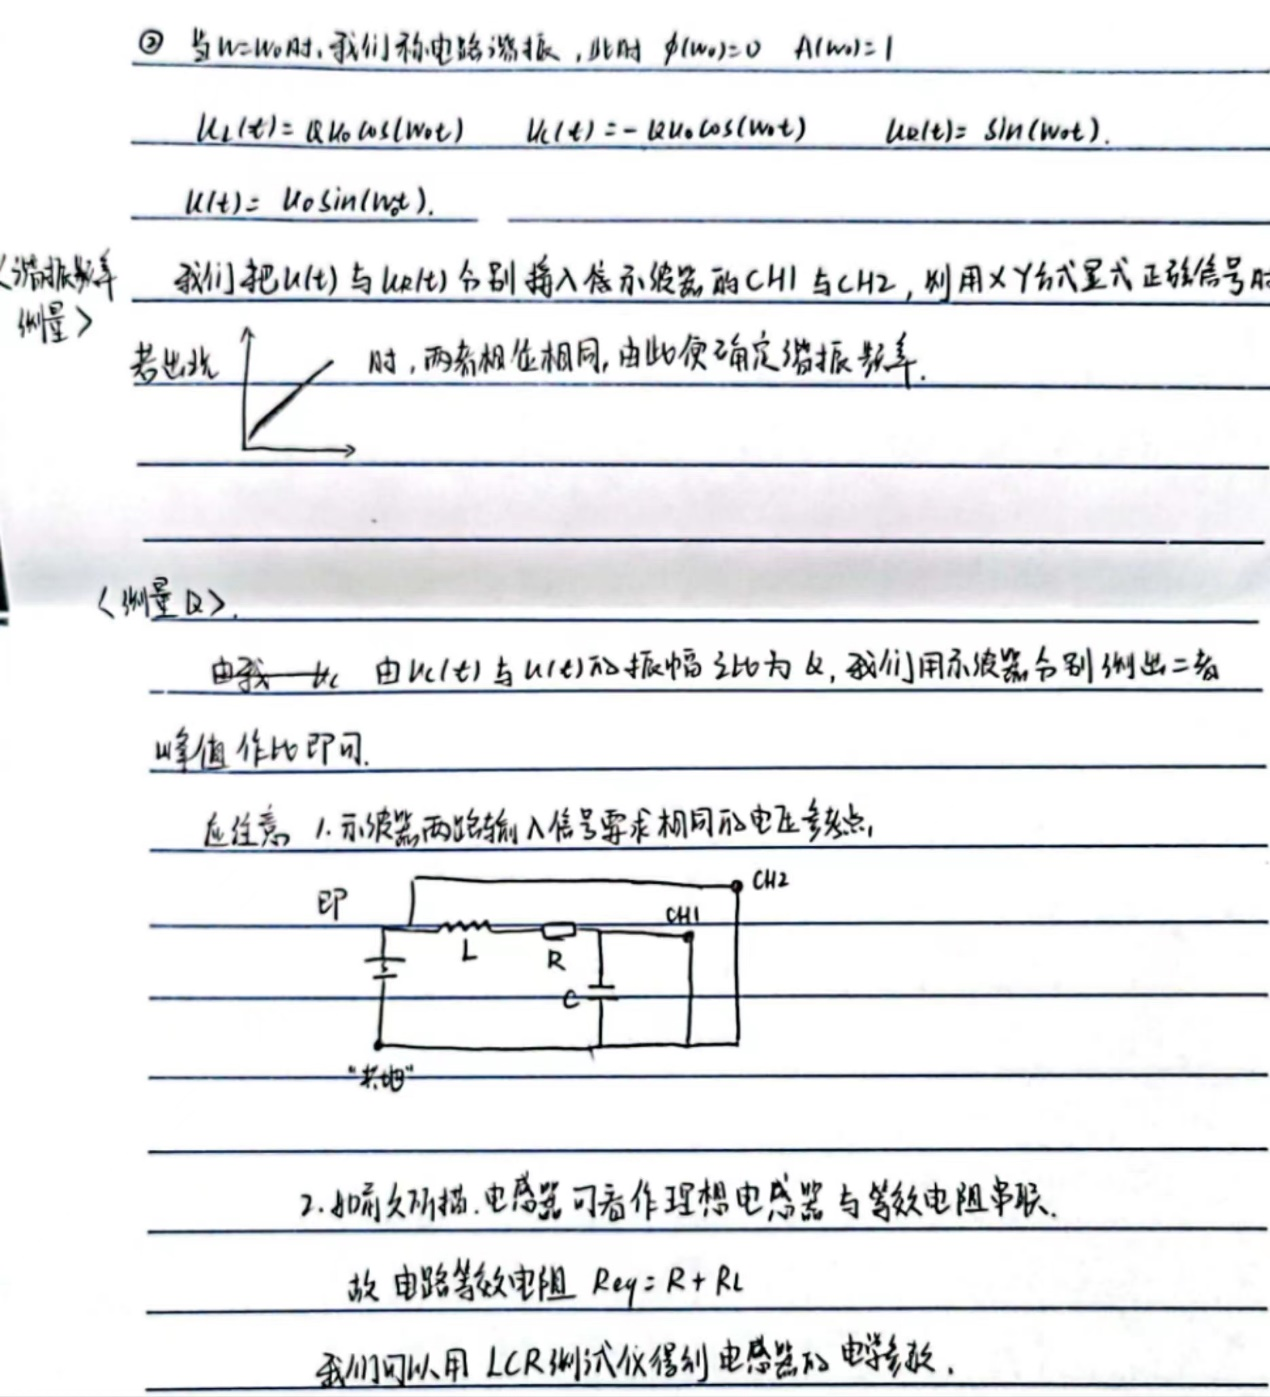 ② 当w=w0时,我们称电路谐振,此时 φ(w0)=0 A(w0)=1
UL(t)=QU0cos(w0t) Uc(t)=-QU0cos(w0t) UR(t)=sin(w0t).
U(t)=U0sin(w0t).
<谐振频率测量>
我们把U(t)与UR(t)分别接入示波器的CH1与CH2,利用XY方式显式正弦信号时
若出现 时,两者相位相同,由此便确定谐振频率.
<测量Q>.
由Uc(t)与U(t)的振幅之比为Q,我们用示波器分别测出二者
峰值作比即可.
应注意 1.示波器两路输入信号要求相同的电压参考点,
即
CH2
CH1
L
R
C
"共地"
2.如前文所描.电感器可看作理想电感器与等效电阻串联.
故电路等效电阻 Req=R+RL
我们可以用LCR测试仪得到电感器的电学参数.